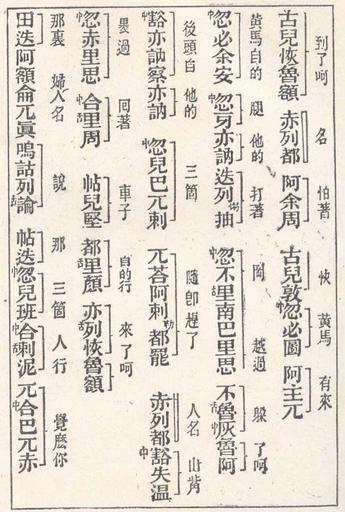 到了呵 名 怕著 快 黃馬 有來
古兒恢魯額 赤列都 阿余周 古兒敦中忽必圖 阿主兀
黃馬自的 腿 他的 打著 岡 越過 躱 了呵
中忽必余安 中忽牙亦訥 迭列惕抽 中忽不里南巴里思 不魯灰魯阿
後頭自 他的 三箇 隨卽趕了 人名 山觜
中豁亦訥察亦訥 中忽兒巴兀剌 兀荅阿剌勒都罷 赤列都中豁失温
過 回著 車子 自的行 來了呵
中忽赤里思 中合舌里周 帖兒堅 都舌里顏 亦列恢魯額
那裏 婦人名 說 那 三箇 人行 覺麽你
田迭阿額侖兀眞 嗚詁列舌論 帖迭中忽兒班 中合舌剌泥 兀中合巴兀赤